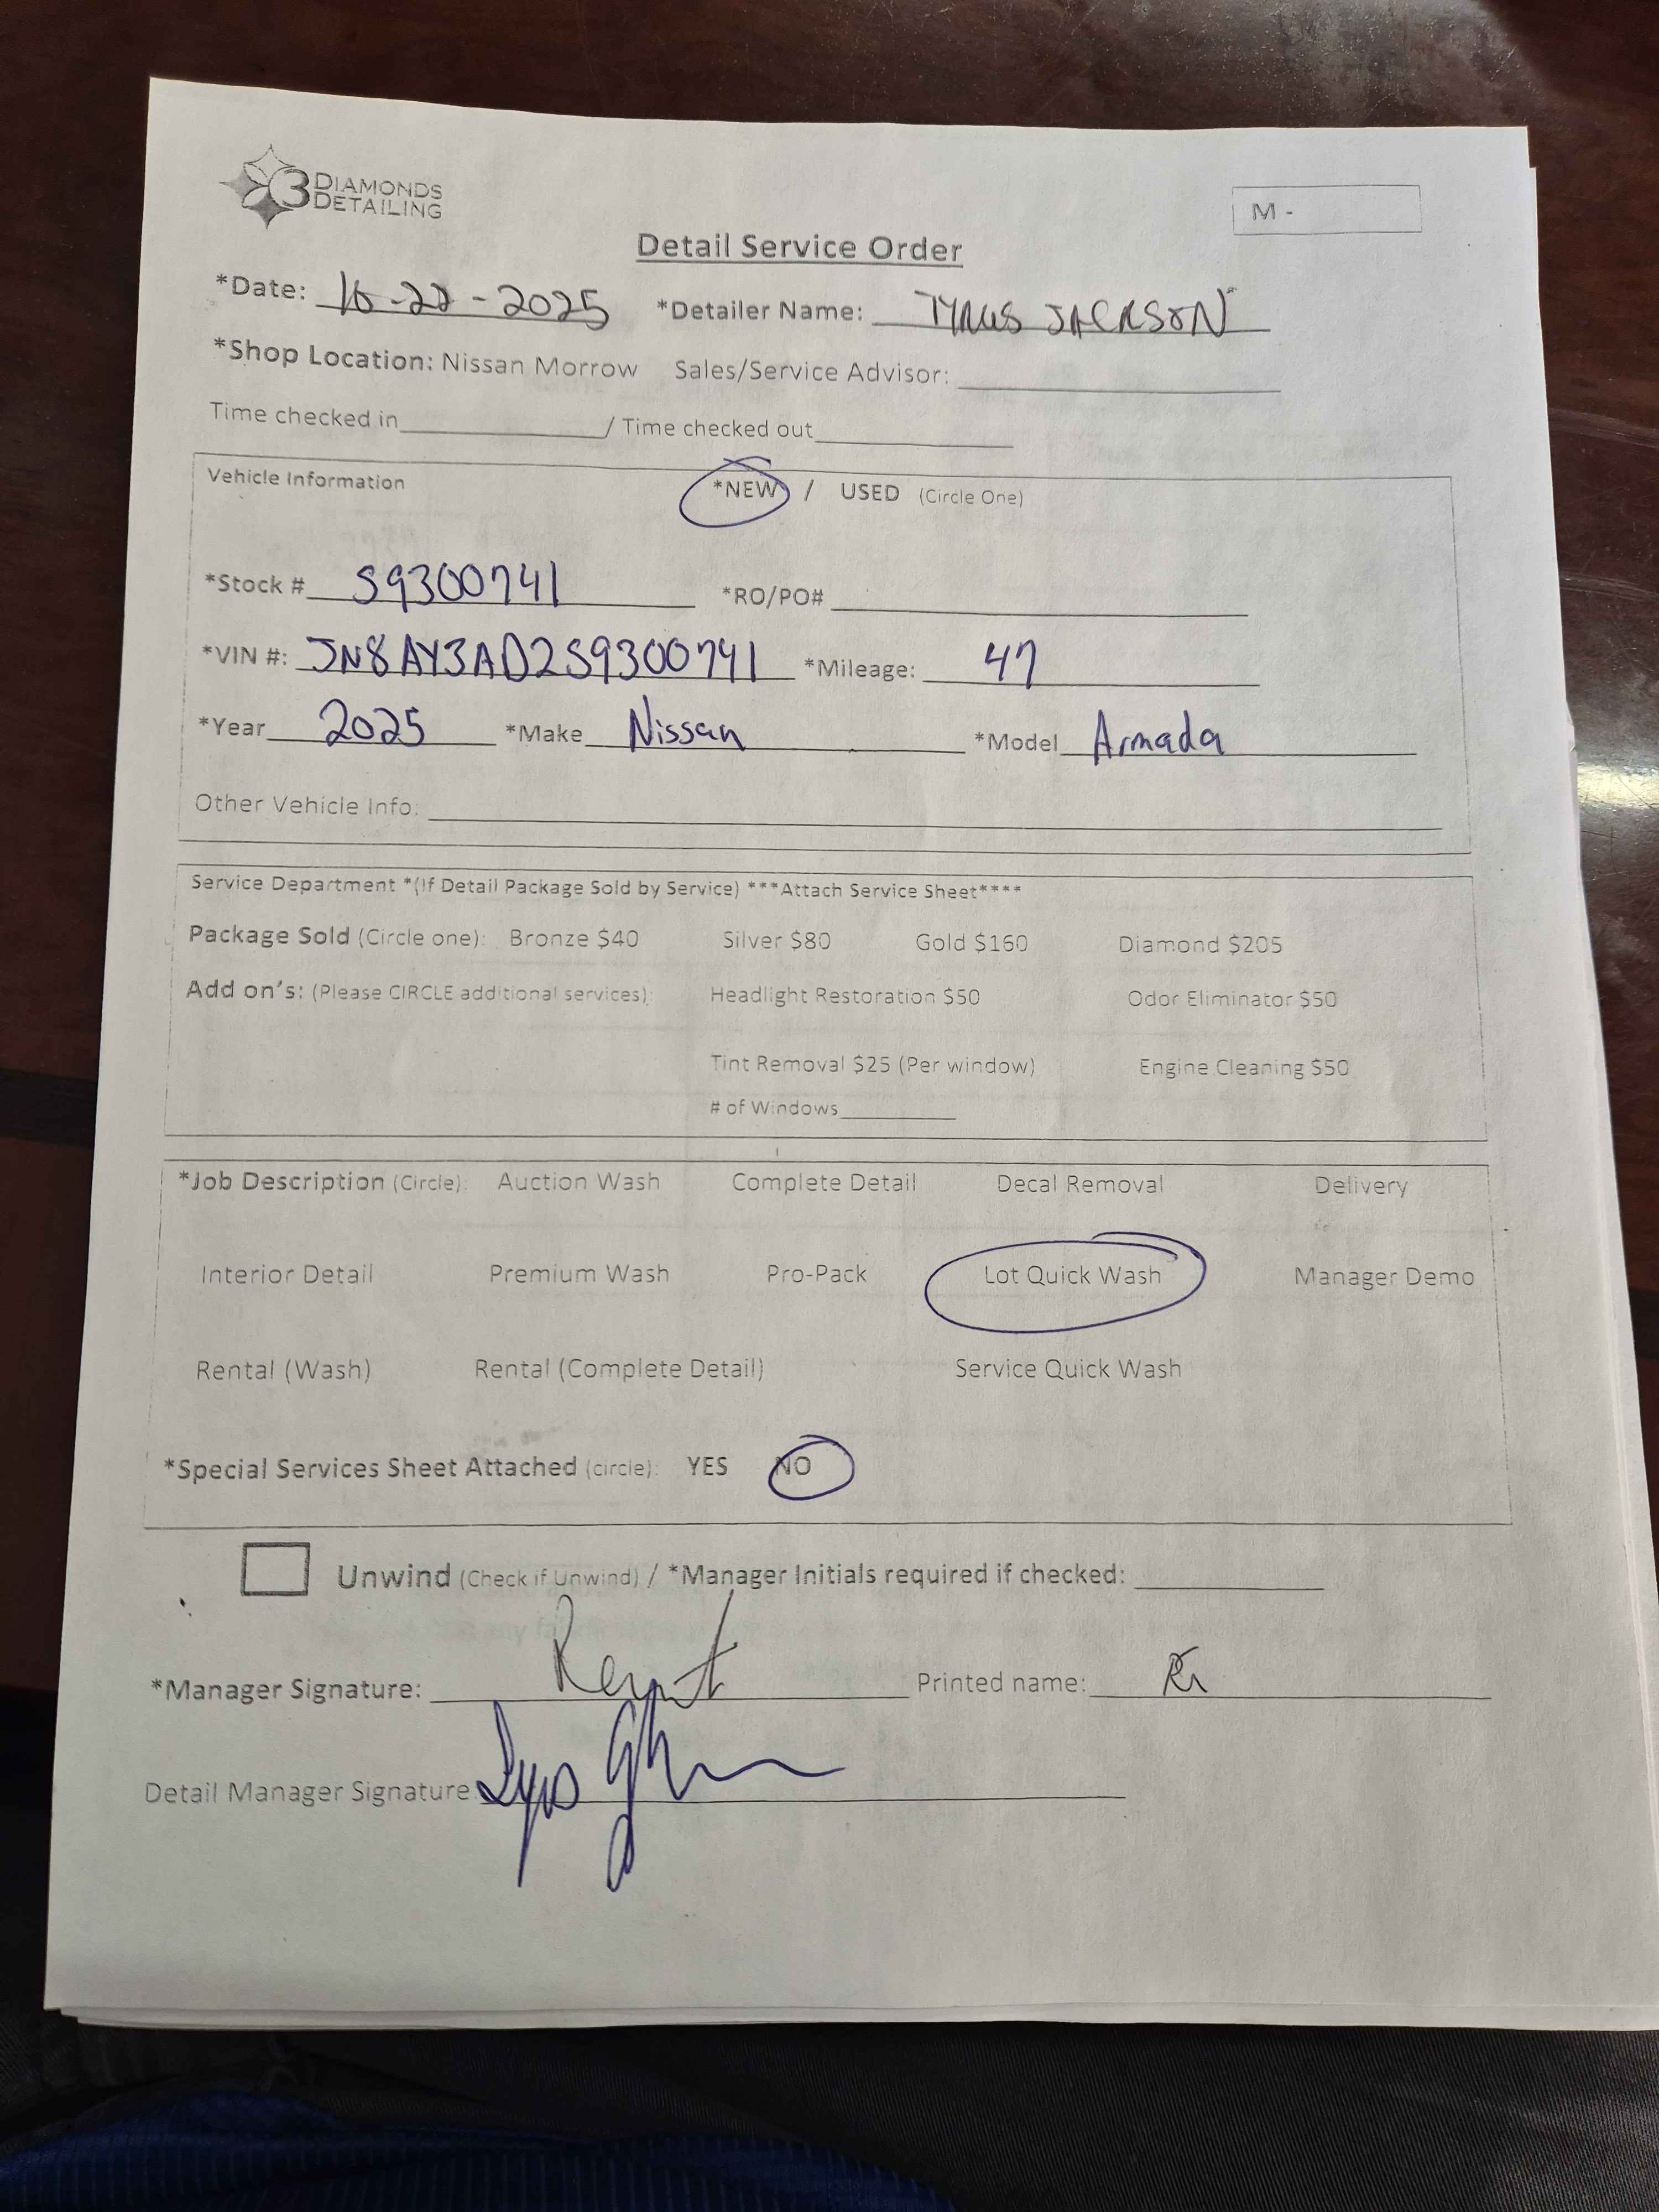 3 DIAMONDS DETAILING
M -
Detail Service Order
*Date: 10-22-2025 *Detailer Name: TYRUS JACKSON
*Shop Location: Nissan Morrow Sales/Service Advisor:
Time checked in / Time checked out
Vehicle Information *NEW / USED (Circle One)
*Stock # S9300741 *RO/PO#
*VIN #: JN8AY3AD2S9300741 *Mileage: 47
*Year 2025 *Make Nissan *Model Armada
Other Vehicle Info:
Service Department *(If Detail Package Sold by Service) ***Attach Service Sheet****
Package Sold (Circle one): Bronze $40 Silver $80 Gold $160 Diamond $205
Add on's: (Please CIRCLE additional services): Headlight Restoration $50 Odor Eliminator $50
Tint Removal $25 (Per window) Engine Cleaning $50
# of Windows
*Job Description (Circle): Auction Wash Complete Detail Decal Removal Delivery
Interior Detail Premium Wash Pro-Pack Lot Quick Wash Manager Demo
Rental (Wash) Rental (Complete Detail) Service Quick Wash
*Special Services Sheet Attached (circle): YES NO
Unwind (Check if Unwind) / *Manager Initials required if checked:
*Manager Signature: Printed name:
Detail Manager Signature: